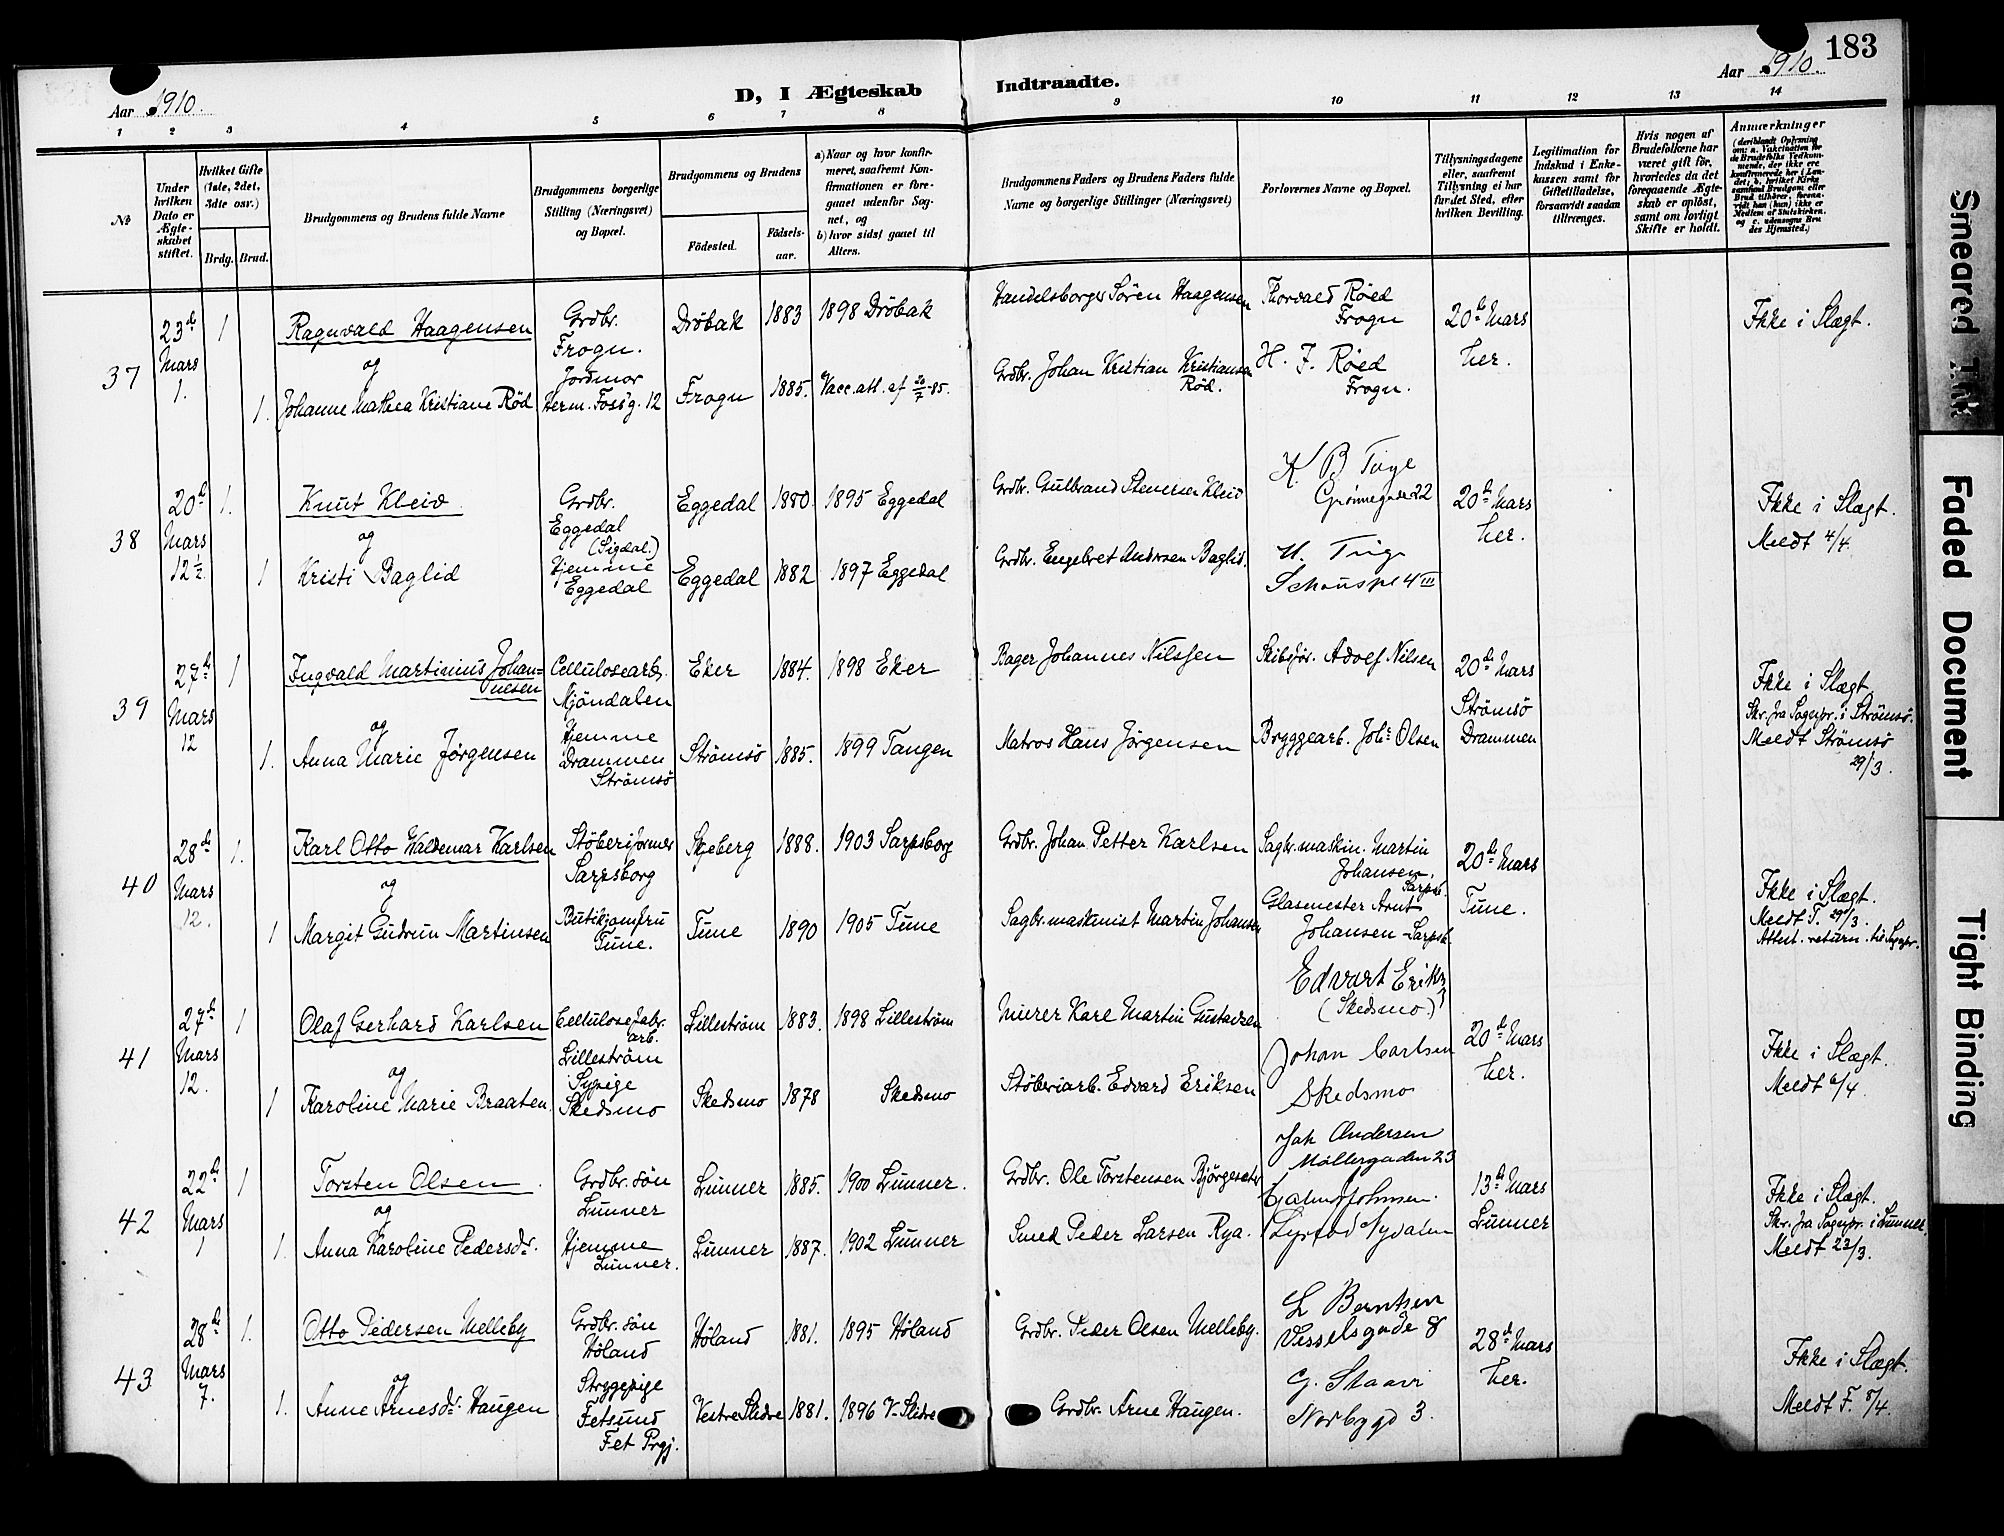 183
Aar 1910.
D, I Ægteskab
Indtraadte.
Aar 1910.
1 2 3 4 5 6 7 8 9 10 11 12 13 14
№
Under hvilken Dato er Ægteskabet stiftet.
Hvilket Gifte (1ste, 2det, 3dte osv.)
Brdg. Brud.
Brudgommens og Brudens fulde Navne
Brudgommens borgerlige Stilling (Næringsvei) og Bopæl.
Brudgommens og Brudens
Fødested.
Fødselsaar.
a) Naar og hvor konfirmeret, saafremt Konfirmationen er foregaaet udenfor Sognet, og
b) hvor sidst gaaet til Alters.
Brudgommens Faders og Brudens Faders fulde Navne og borgerlige Stillinger (Næringsvei)
Forlovernes Navne og Bopæl.
Tillysningsdagene eller, saafremt Tillysning ei har fundet Sted, efter hvilken Bevilling.
Legitimation for Indskud i Enkekassen samt for Giftetilladelse, forsaavidt saadan tiltrænges.
Hvis nogen af Brudefolkene har været gift før, hvorledes da det foregaaende Ægteskab er opløst, samt om lovligt Skifte er holdt.
Anmærkninger
(deriblandt Oplysning om: a. Vakcination for de Brudefolks Vedkommende, der ikke ere konfirmerede her i Landet; b. hvilket Kirkesamfund Brudgom eller Brud tilhører, forsavidt han (hun) ikke er Medlem af Statskirken, og c. udensogns Brudes Hjemsted.)
37
23de Mars 1.
1
Ragnvald Haagensen
Grdbr. Frogn.
Drøbak
1883
1898 Drøbak
Handelsborger Søren Haagensen
Thorvald Røed Frogn
20de Mars her.
Ikke i Slægt.
og
1.
Johanne Mathea Kristiane Rød
Jordmor Herm. Fossg. 12
Frogn
1885.
Vacc.att. af 20/7-85.
Grdbr. Johan Kristian Kristiansen Rød.
H. J. Røed Frogn.
38
20de Mars 12 1/2.
1.
Knut Kleiv
Grdbr. Eggedal (Sigdal.)
Eggedal
1880.
1895 Eggedal
Grdbr. Gulbrand Stenersen Kleiv
K. B. Tuge Grønnegade 22
20de Mars her.
Ikke i Slægt.
Meldt 4/4.
og
1
Kristi Baglid
Hjemme Eggedal
Eggedal
1882
1897 Eggedal
Grdbr. Engebret Andersen Baglid.
H. Tuge
Schouspl 4 III
39
27de Mars 12
1
Ingvald Martinius Johannesen
Cellulosearb. Mjøndalen
Eker
1884.
1898 Eker
Bager Johannes Nilssen
Skibsfør. Adolf Nilsen
20de Mars Strømsø Drammen
Ikke i Slægt.
Skr. fra Sognepr. i Strømsø.
Meldt Strømsø 29/3.
og
1.
Anna Marie Jørgensen
Hjemme Drammen Strømsø
Strømsø
1885.
1899 Tangen
Matros Hans Jørgensen
Bryggearb. Johs Olsen
40
28de Mars 12.
1.
Karl Otto Waldemar Karlsen
Støberiformer Sarpsborg
Skjeberg
1888.
1903 Sarpsborg
Grdbr. Johan Petter Karlsen
Sagbr.maskin. Martin Johansen. Sarpsb.
20de Mars Tune.
Ikke i Slægt.
Meldt T. 29/3.
Attest. return. til Sognepr.
og
1
Margit Gudrun Martinsen
Butikjomfru Tune.
Tune
1890
1905 Tune
Sagbr.maskinist Martin Johansen
Glasmester Arnt Johansen - Sarpsb.
41
27de Mars 12.
1
Olaf Gerhard Karlsen
Cellulosefabr. arb. Lillestrøm
Lillestrøm
1883.
1898 Lillestrøm
Murer Karl Martin Gustavsen
Edvart Eriks (Skedsmo)
20de Mars her.
Ikke i Slægt.
Meldt 6/4.
og
1
Karoline Marie Braaten.
Sypige Skedsmo
Skedsmo
1878
Skedsmo
Støberiarb. Edvard Eriksen
Johan Carlsen Skedsmo
42
22de Mars 1
1
Torsten Olsen
Grdbr. søn Lunner
Lunner
1885.
1900 Lunner.
Grdbr. Ole Torstensen Bjørgeseter
Joh Andersen Møllergaden 23
13de Mars Lunner
Ikke i Slægt.
Skr. fra Sognepr. i Lunner.
Meldt 23/3.
og
1.
Anna Karoline Pedersdr.
Hjemme Lunner.
Lunner
1887.
1902 Lunner
Smed Peder Larsen Rya.
43
28de Mars 7.
1.
Otto Pedersen Melleby
Grdbr. søn Høland
Høland
1881.
1895 Høland
Grdbr. Peder Olsen Melleby.
L Berntsen Vesselsgade 8
28de Mars her.
Ikke i Slægt.
Meldt F. 8/4.
og
1.
Anne Arnesdr. Haugen
Strygepige Fetsund Fet Prgj.
Vestre Slidre
1881.
1896 V-Slidre
Grdbr. Arne Haugen.
G. Staavi Norbygd 3.
Smeared Ink
Faded Document
Tight Binding